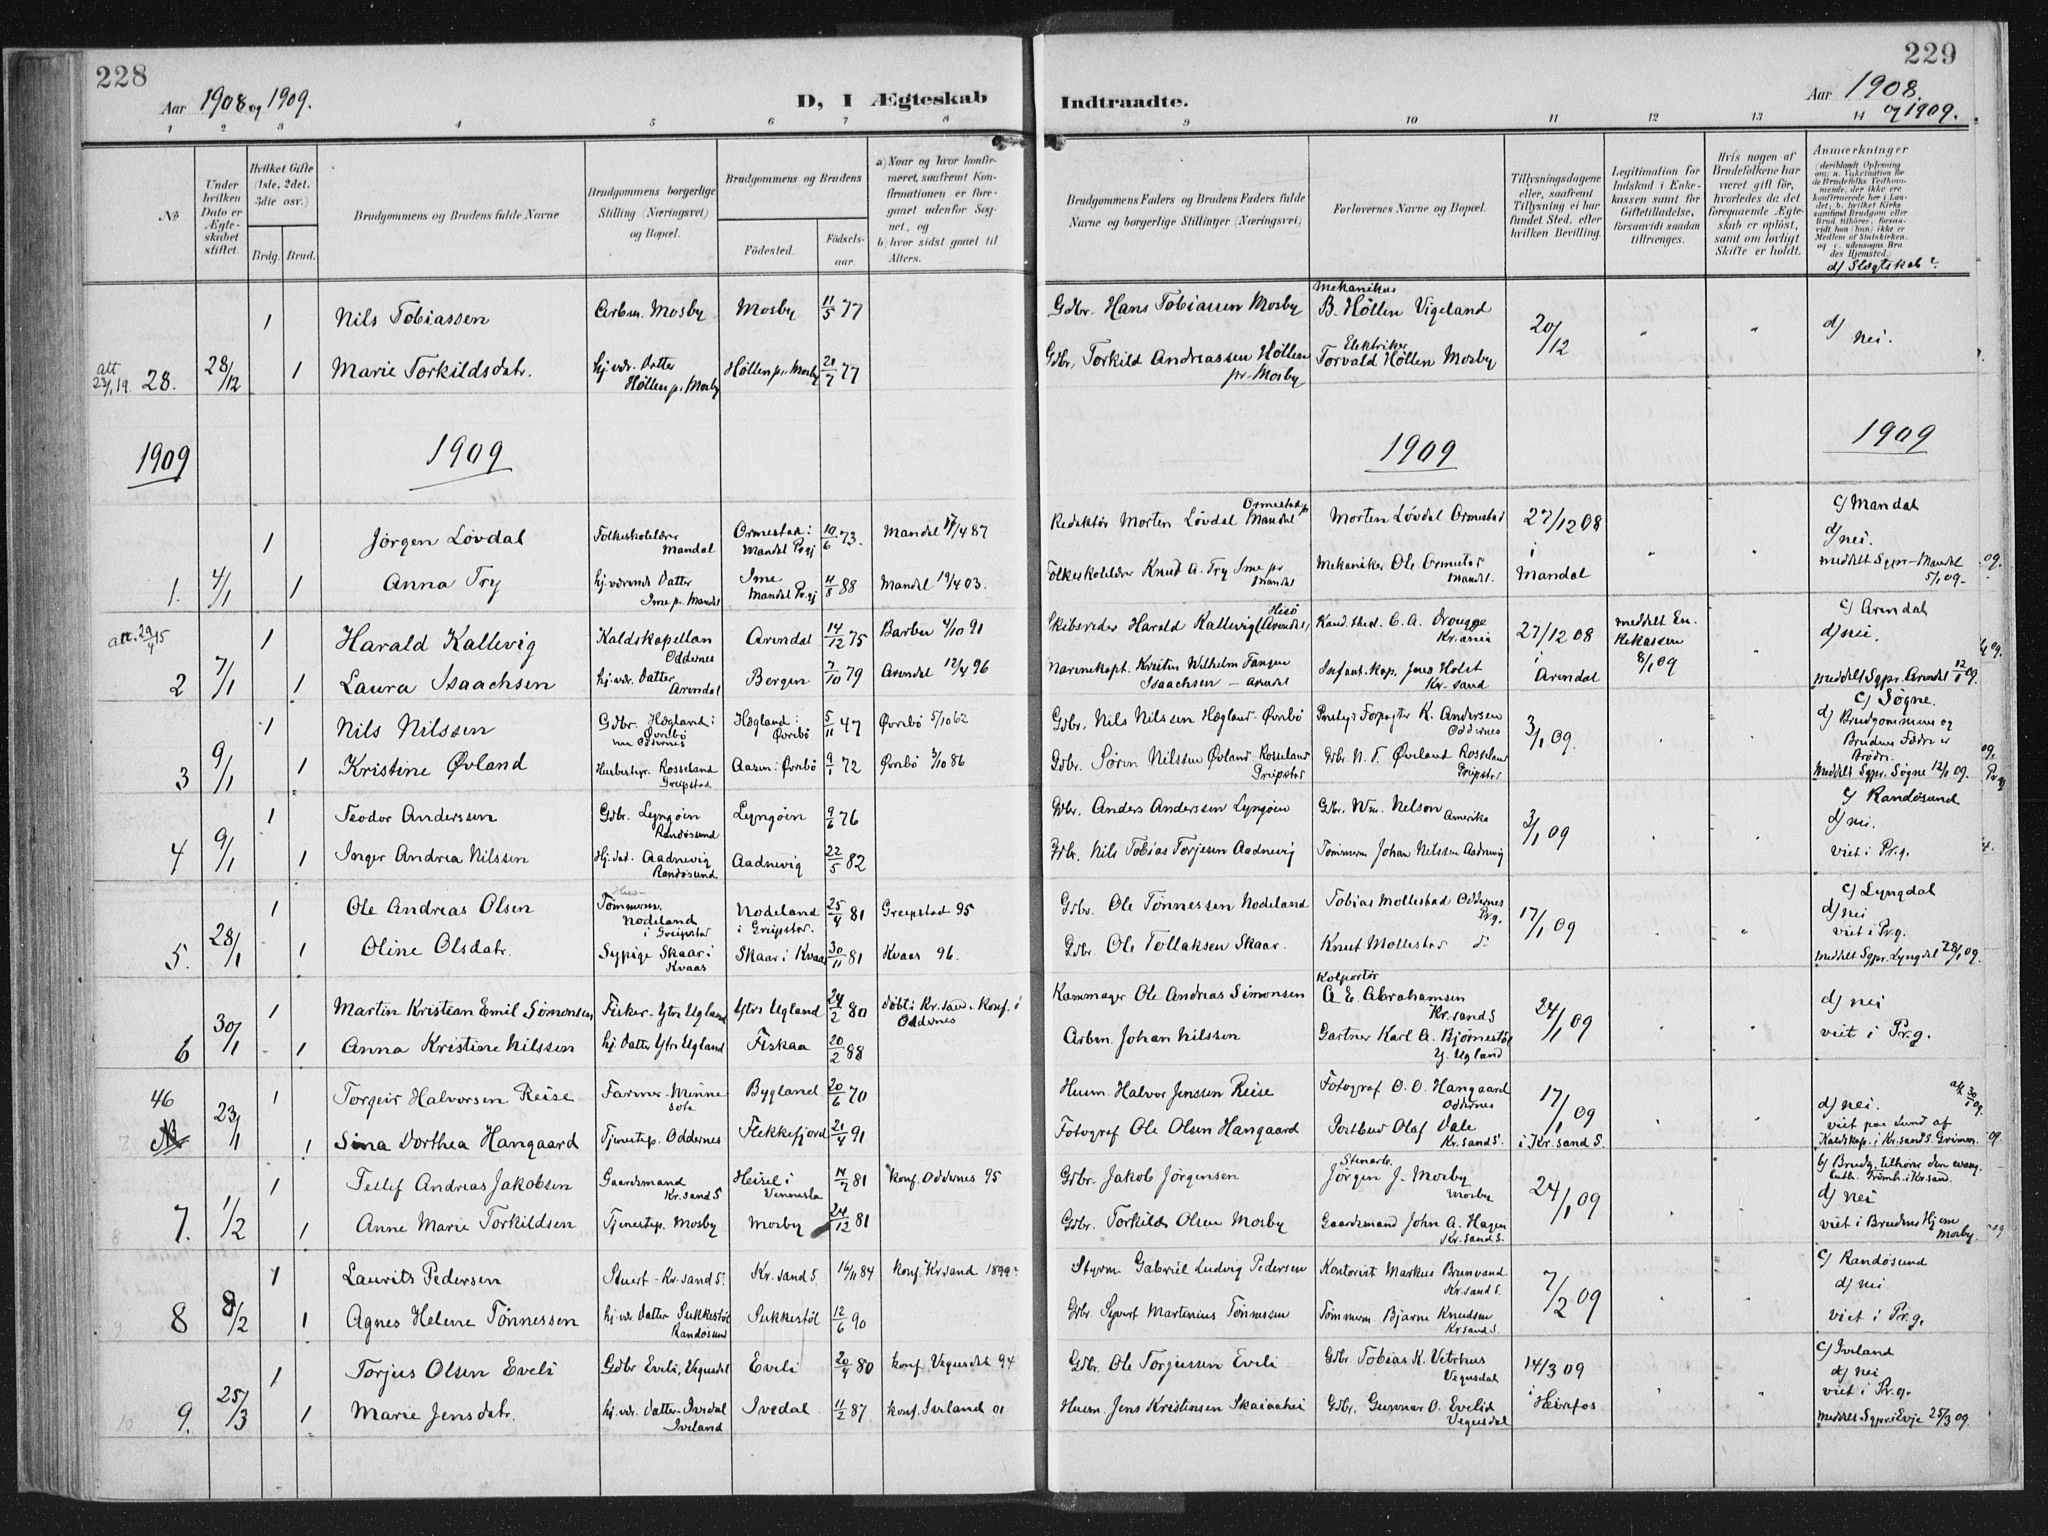 228
Aar 1908 og 1909.
D, I Ægteskab
Indtraadte.
Aar 1908.
og 1909.
229
1 2 3 4 5 6 7 8 9 10 11 12 13 14
No
Under hvilken Dato er Ægteskabet stiftet.
Hvilket Gifte (1ste, 2det, 3die osv.)
Brdg. Brud.
Brudgommens og Brudens fulde Navne
Brudgommens borgerlige Stilling (Næringsvei) og Bopæl.
Brudgommens og Brudens
Fødested.
Fødselsaar.
a) Naar og hvor konfirmeret, saafremt Konfirmationen er foregaaet udenfor Sognet, og
b) hvor sidst gaaet til Alters.
Brudgommens Faders og Brudens Faders fulde Navne og borgerlige Stillinger (Næringsvei)
Forlovernes Navne og Bopæl.
Tillysningsdagene eller, saafremt Tillysning ei har fundet Sted, efter hvilken Bevilling.
Legitimation for Indskud i Enkekassen samt for Giftetilladelse, forsaavidt saadan tiltrænges.
Hvis nogen af Brudefolkene har været gift før, hvorledes da det foregaaende Ægteskab er opløst, samt om lovligt Skifte er holdt.
Anmærkninger
d) Slægtskab?
1 Nils Tobiassen Arbm. Mosby Mosby 11/5 77 Gdbr. Hans Tobiassen Mosby Mekanikus B. Höllen Vigeland 20/12 d) nei.
att 28. 28/12 1 Marie Torkildsdatr. hj. vær. Datter Höllen pr. Mosby Höllen pr. Mosby 21/7 77 Gdbr. Torkild Andreassen Höllen pr. Mosby Elektriker Torvald Höllen Mosby
1909 1909 1909 1909
1 Jørgen Løvdal Folkeskolelærer Mandal Ormestad i Mandal Prgj 19/6 73. Mandal 17/4 87 Redaktør Morten Løvdal Ormestad pr Mandal Morten Løvdal Ormestad 27/12 08 c) Mandal d) nei.
1. 4/1 1 Anna Try hj. værende Datter Ime pr. Mandal Ime Mandal Prgj 11/8 88 Mandal 19/4 03. Folkeskolelærer Knud A. Try Ime pr Mandal Mekaniker Ole Ormestad Mandal. i Mandal meddelt Sgpr Mandal 5/1 09.
att. 29/4 15 1 Harald Kallevig Kaldskapellan Oddernes Arendal 14/12 75 Barbu 4/10 91 Skibsreder Harald Kallevig Hisö (Arendal) Kand. theol. C. A. Krania 27/12 08 meddelt Enkekassen 8/1 09 c) Arendal d) nei.
2 7/1 1 Laura Isaachsen hj. vær. Datter Arendal Bergen 7/10 79 Arendal 12/4 96 Marinekapt. Kristen Wilhelm Fangen Isaachsen - Arendal Infant. Kap. Jens Holst Kr.sand i Arendal meddelt Sgpr. Arendal 12/1 09.
1 Nils Nilssen Gdbr. Hægland i Øvrebö nu Oddernes Hægland i Øvrebö 5/11 47 Øvrebö 5/10 62 Gdbr. Nils Nilssen Hægland Øvrebö Forpagter K. Andersen Oddernes 3/1 09. c) Søgne. d) Brudgommens og Brudens Fædre er Brødre.
3 9/1 1 Kristine Øvland Husbestyr. Rosseland Greipstad Aasen i Øvrebö 9/1 72 Øvrebö 3/10 86 Gdbr. Søren Nilssen Øvland Rosseland Greipstad Gdbr. N. T. Øvland Rosseland Greipstad Meddelt Sgpr. Søgne 12/1 09.
1 Teodor Anderssen Gdbr. Lyngöen Randøsund Lyngöen 9/6 76 Gdbr. Anders Anderssen Lyngöen Gdbr. Wm. Nelson Amerika 3/1 09 c) Randøsund d) nei.
4 9/1 1 Inger Andrea Nilssen Hj. dat. Aadnevig Randøsund Aadnevig 22/5 82 Gdbr. Nils Tobias Torjesen Aadnevig Tömmerm Johan Nilssen Aadnevig viet i Pr.g.
1 Ole Andreas Olsen Tömmerm. Nodeland i Greipstad Nodeland i Greipstad. 25/4 81 Greipstad 95 Gdbr. Ole Tønnessen Nodeland Tobias Mollestad Oddernes Pr.g. 17/1 09 c) Lyngdal d) nei viet i Pr.g.
5. 28/1 1 Oline Olsdatr. Sypige Skaar i Kvaas Skaar i Kvaas 30/11 81 Kvaas 96. Gdbr. Ole Tollaksen Skaar. Knut Mollestad meddelt Sgpr. Lyngdal 28/1 09.
1 Martin Kristian Emil Simonsen Fisker - Ytre Ugland Ytre Ugland 24/2 80 döbt i Kr.sand. Konf. i Oddernes Kammager Ole Andreas Simonsen Kolportör A. E. Abrahamsen Kr.sand S 24/1 09 d) nei
6 30/1 1 Anna Kristine Nilssen hj. Datter Ytre Ugland Fiskaa 20/2 88 Arbm. Johan Nilssen Gartner Karl A. Bjørnestøl Y. Ugland viet i Pr.g.
46 1 Torgeir Halvorsen Reise Farmer - Minnesota Bygland 20/6 70 Husm. Halvor Jenssen Reise Fotograf O. O. Hangaard Oddernes 17/1 09 d) nei.
23/1 1 Sina Dorthea Hangaard Tjenestep. Oddernes Flekkefjord 21/4 91 Fotograf Ole Olsen Hangaard Postbud Olaf Dale Kr.sand S. i Kr.sand S. viet paa Lund af Kaldskap. i Kr.sand S. Grimnes
1 Tellef Andreas Jakobsen Gaardsmand Kr.sand S Heisel i Vennesla 14/7 81 konf. Oddernes 95 Gdbr. Jakob Jørgensen Stenarb. Jörgen J. Mosby Mosby 24/1 09 b) Brudg. tilhører den evang. luth. Frimh. i Kr.sand. d) nei
7. 1/2 1 Anne Marie Torkildsen Tjenestep. Mosby Mosby 24/12 81 Gdbr. Torkild Olsen Mosby Gaardsmand John A. Hagen Kr.sand S. viet i Brudens Hjem Mosby.
1 Laurits Pedersen Stuert - Kr.sand S. Kr.sand S. 16/11 84 konf. Kr.sand 1899? Styrm Gabriel Ludvig Pedersen Kontorist Markus Brunvand Kr.sand S. 7/2 09 c) Randøsund d) nei
8 8/2 1 Agnes Helene Tønnessen hj. vær Datter Sukkestøl Randøsund Sukkestøl 12/6 90 Gdbr Syvert Martinius Tønnessen Tömmerm Bjarne Knudsen Kr.sand S. viet i Pr.g.
1 Torjus Olsen Eveli Gdbr Eveli, Vegusdal Eveli 20/4 80 konf. Vegusdal 94 Gdbr. Ole Torjussen Eveli Gdbr. Tobias K. Vetrhus Vegusdal 14/3 09 c) Iveland d) nei viet i Pr.g.
9. 25/3 1 Marie Jensdatr. hj. vær. Datter Ivedal Iveland Ivedal 11/2 87 konf. Iveland 01 Husm. Jens Kristensen Skaiaahei Gdbr. Gunnar O. Evelid Vegusdal i Heirefos meddelt Sgpr i Evje 25/3 09.